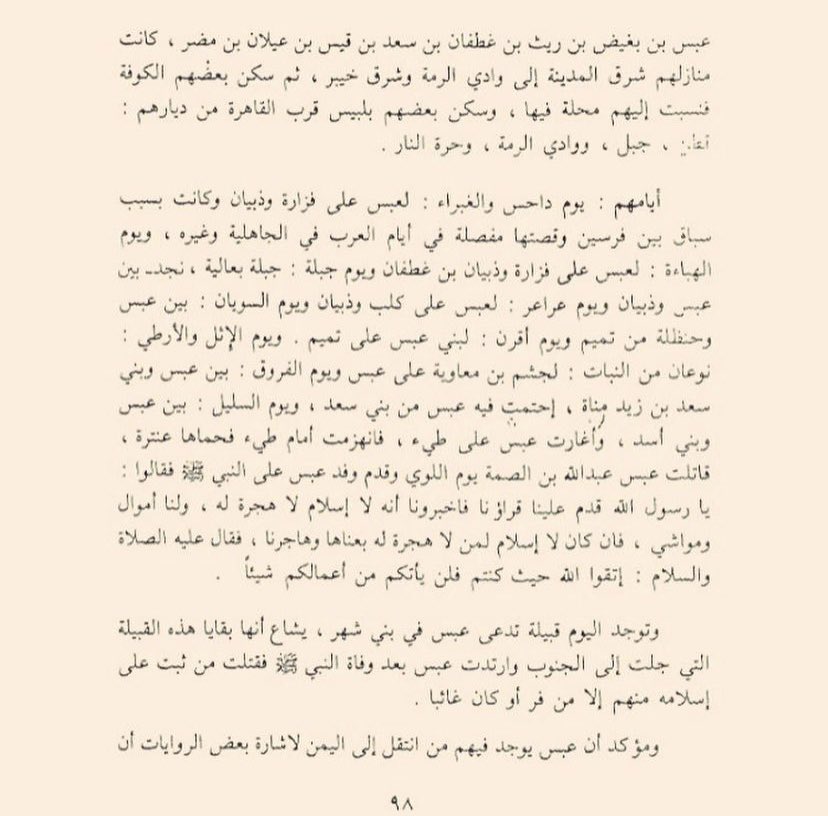 عبس بن بغيض بن ريث بن غطفان بن سعد بن قيس بن عيلان بن مضر ، كانت
منازلهم شرق المدينة إلى وادي الرمة وشرق خيبر ، ثم سكن بعضهم الكوفة
فنسبت إليهم محلة فيها ، وسكن بعضهم بلبيس قرب القاهرة من ديارهم :
، جبل ، ووادي الرمة ، وحرة النار .
أيامهم : يوم داحس والغبراء : لعبس على فزارة وذبيان وكانت بسبب
سباق بين فرسين وقصتها مفصلة في أيام العرب في الجاهلية وغيره ، ويوم
الهباءة : لعبس على فزارة وذبيان بن غطفان ويوم جبلة : جبلة بعالية ، نجد ـ بين
عبس وذبيان ويوم عراعر : لعبس على كلب وذبيان ويوم السوبان : بين عبس
وحنظلة من تميم ويوم أقرن : لبني عبس على تميم . ويوم الإثل والأرطي :
نوعان من النبات : لجشم بن معاوية على عبس ويوم الفروق : بين عبس وبني
سعد بن زيد مناة ، إحتمت فيه عبس من بني سعد ، ويوم السليل : بين عبس
وبني أسد ، وأغارت عبس على طيء ، فانهزمت أمام طيء فحماها عنترة ،
قاتلت عبس عبدالله بن الصمة يوم اللوي وقدم وفد عبس على النبي ﷺ فقالوا :
يا رسول الله قدم علينا قراؤنا فاخبرونا أنه لا إسلام لا هجرة له ، ولنا أموال
ومواشي ، فان كان لا إسلام لمن لا هجرة له بعناها وهاجرنا ، فقال عليه الصلاة
والسلام : إتقوا الله حيث كنتم فلن يأتكم من أعمالكم شيئاً .
وتوجد اليوم قبيلة تدعى عبس في بني شهر ، يشاع أنها بقايا هذه القبيلة
التي جلت إلى الجنوب وارتدت عبس بعد وفاة النبي ﷺ فقتلت من ثبت على
إسلامه منهم إلا من فر أو كان غائبا .
ومؤكد أن عبس يوجد فيهم من انتقل إلى اليمن لاشارة بعض الروايات أن
٩٨